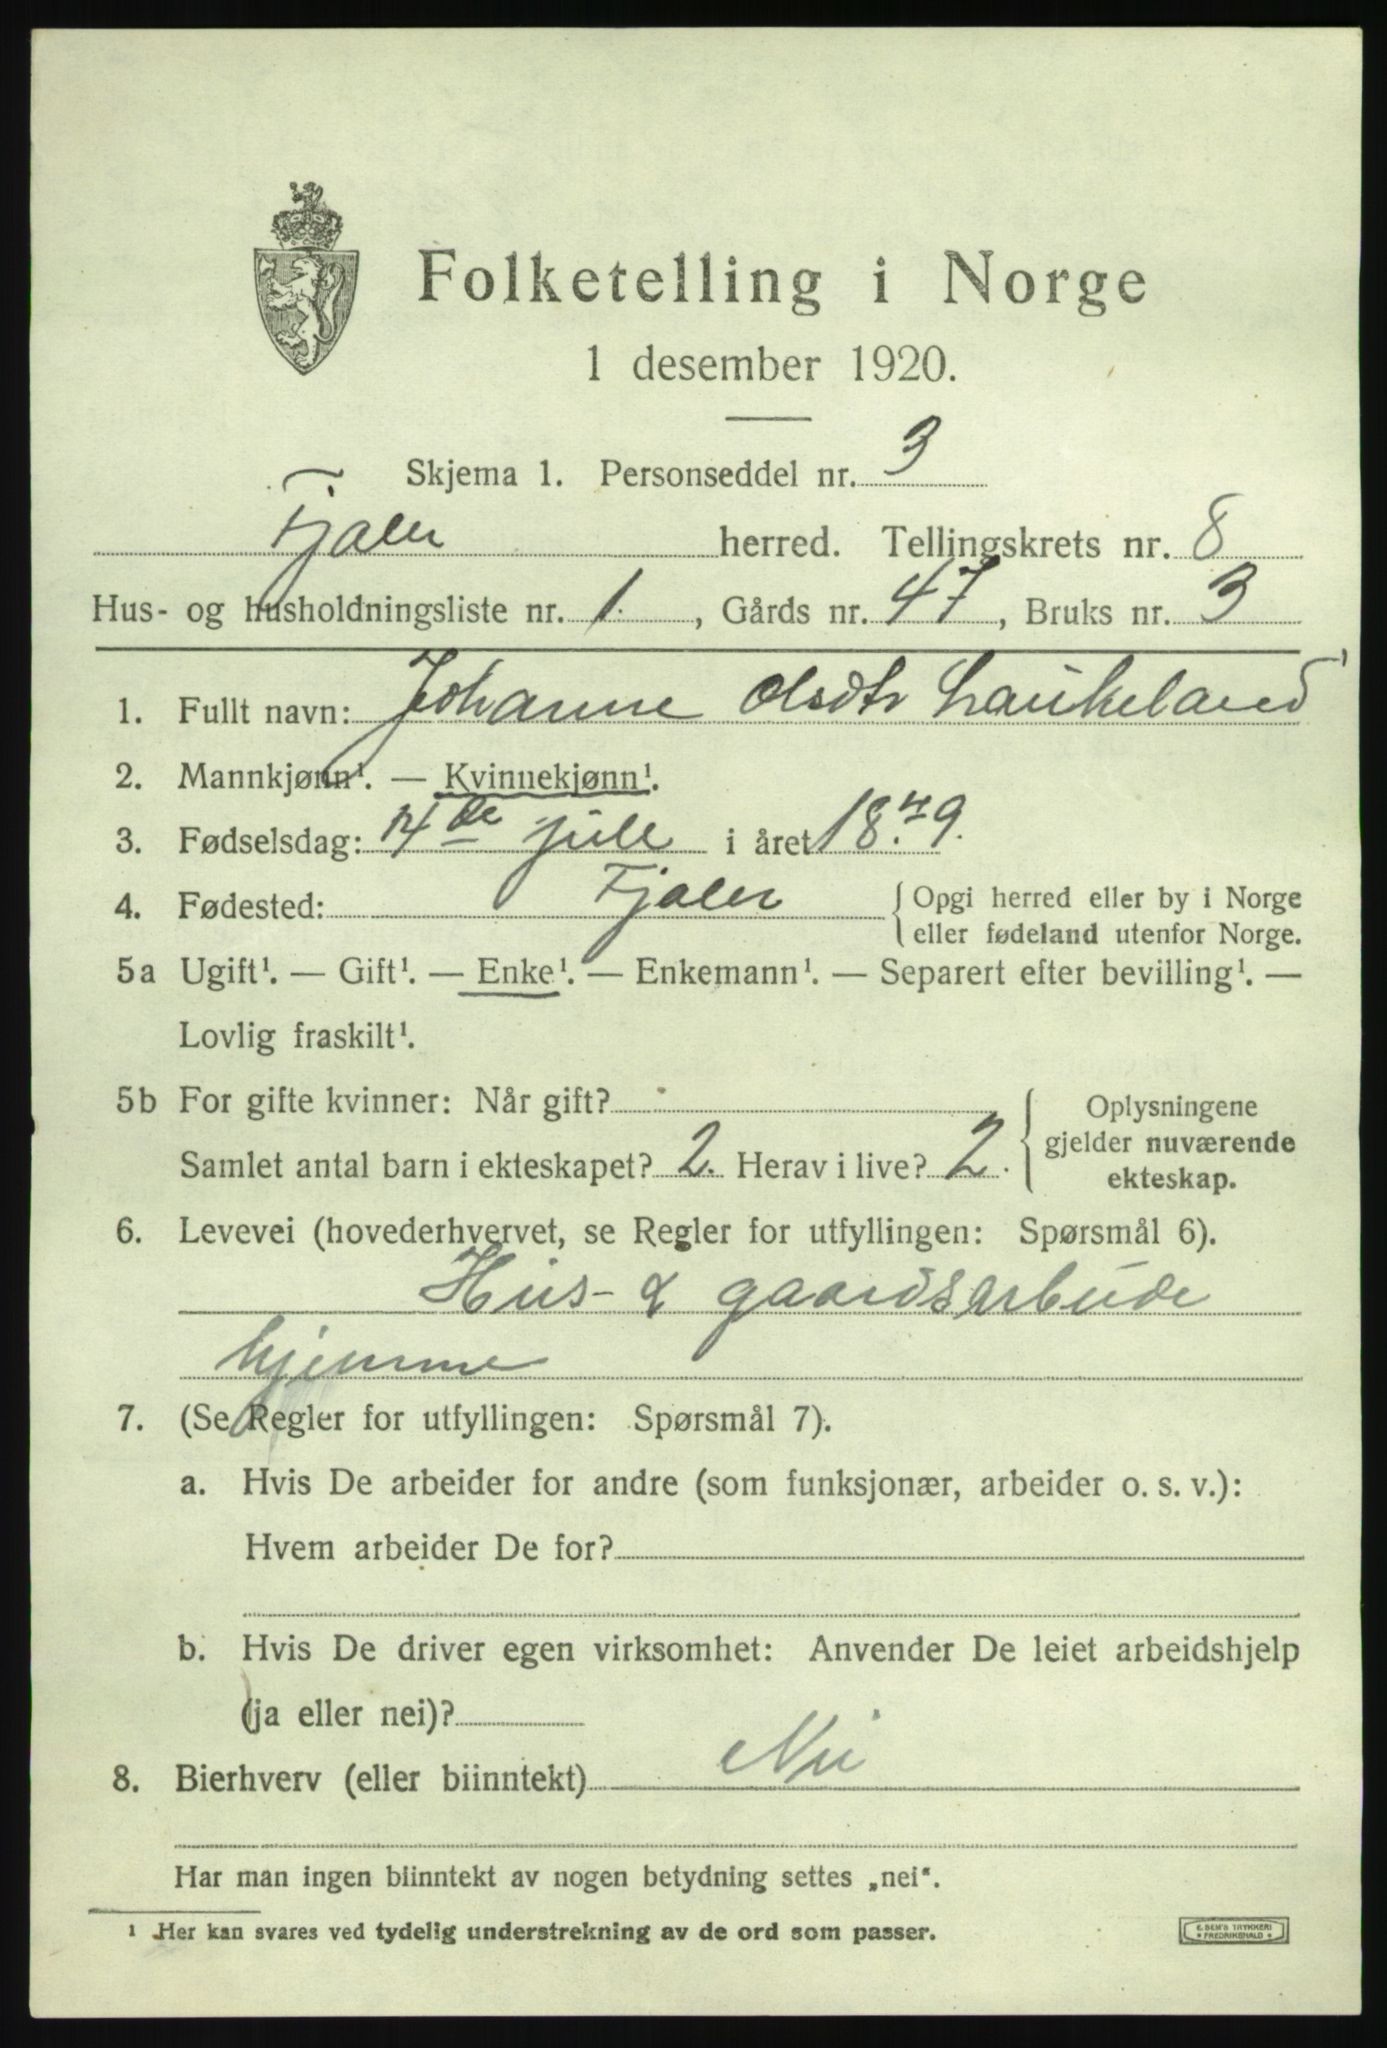 Folketelling i Norge
1 desember 1920.
Skjema 1. Personseddel nr. 3
Fjaler herred. Tellingskrets nr. 8
Hus- og husholdningsliste nr. 1. , Gårds nr. 47 , Bruks nr. 3
1. Fullt navn: Johanne Olsdtr Laukeland
2. Mannkjønn¹. — Kvinnekjønn¹.
3. Fødselsdag: 14de juli i året 1879.
4. Fødested: Fjaler { Opgi herred eller by i Norge
eller fødeland utenfor Norge.
5a Ugift¹. — Gift¹. — Enke¹. — Enkemann¹. — Separert efter bevilling¹. —
Lovlig fraskilt¹.
5b For gifte kvinner: Når gift?
Samlet antal barn i ekteskapet? 2. Herav i live? 2.
{ Oplysningene
gjelder nuværende
ekteskap.
6. Levevei (hovederhvervet, se Regler for utfyllingen: Spørsmål 6).
Hus- & gaardsarbeide
hjemme
7. (Se Regler for utfyllingen: Spørsmål 7).
a. Hvis De arbeider for andre (som funksjonær, arbeider o. s. v.):
Hvem arbeider De for?
b. Hvis De driver egen virksomhet: Anvender De leiet arbeidshjelp
(ja eller nei)?
8. Bierhverv (eller biinntekt) Nei
Har man ingen biinntekt av nogen betydning settes „nei“.
¹ Her kan svares ved tydelig understrekning av de ord som passer.
E. SEM'S TRYKKERI
* FREDRIKSHALD *